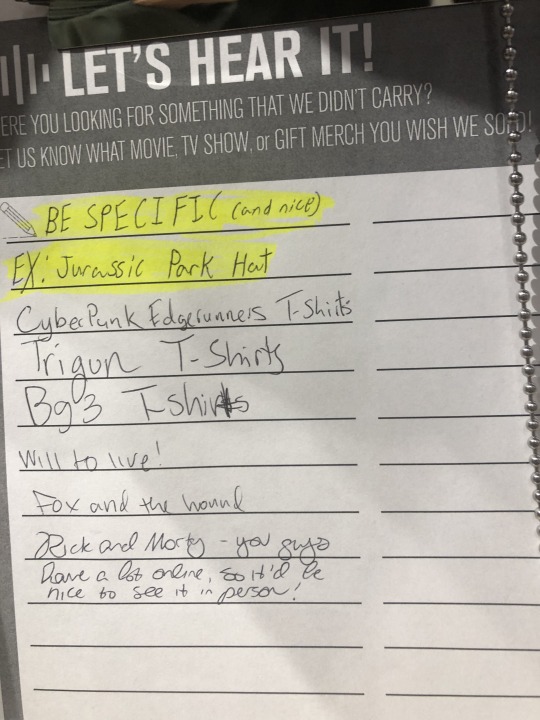 LET'S HEAR IT!
ERE YOU LOOKING FOR SOMETHING THAT WE DIDN'T CARRY?
ET US KNOW WHAT MOVIE, TV SHOW, or GIFT MERCH YOU WISH WE SOLD!
BE SPECIFIC (and nice)
EX: Jurassic Park Hat
CyberPunk Edgerunners T-Shirts
Trigun T-Shirts
Bg3 T-shirts
Will to live!
Fox and the hound
Rick and Morty - you guys
have a lot online, so it'd be
nice to see it in person!